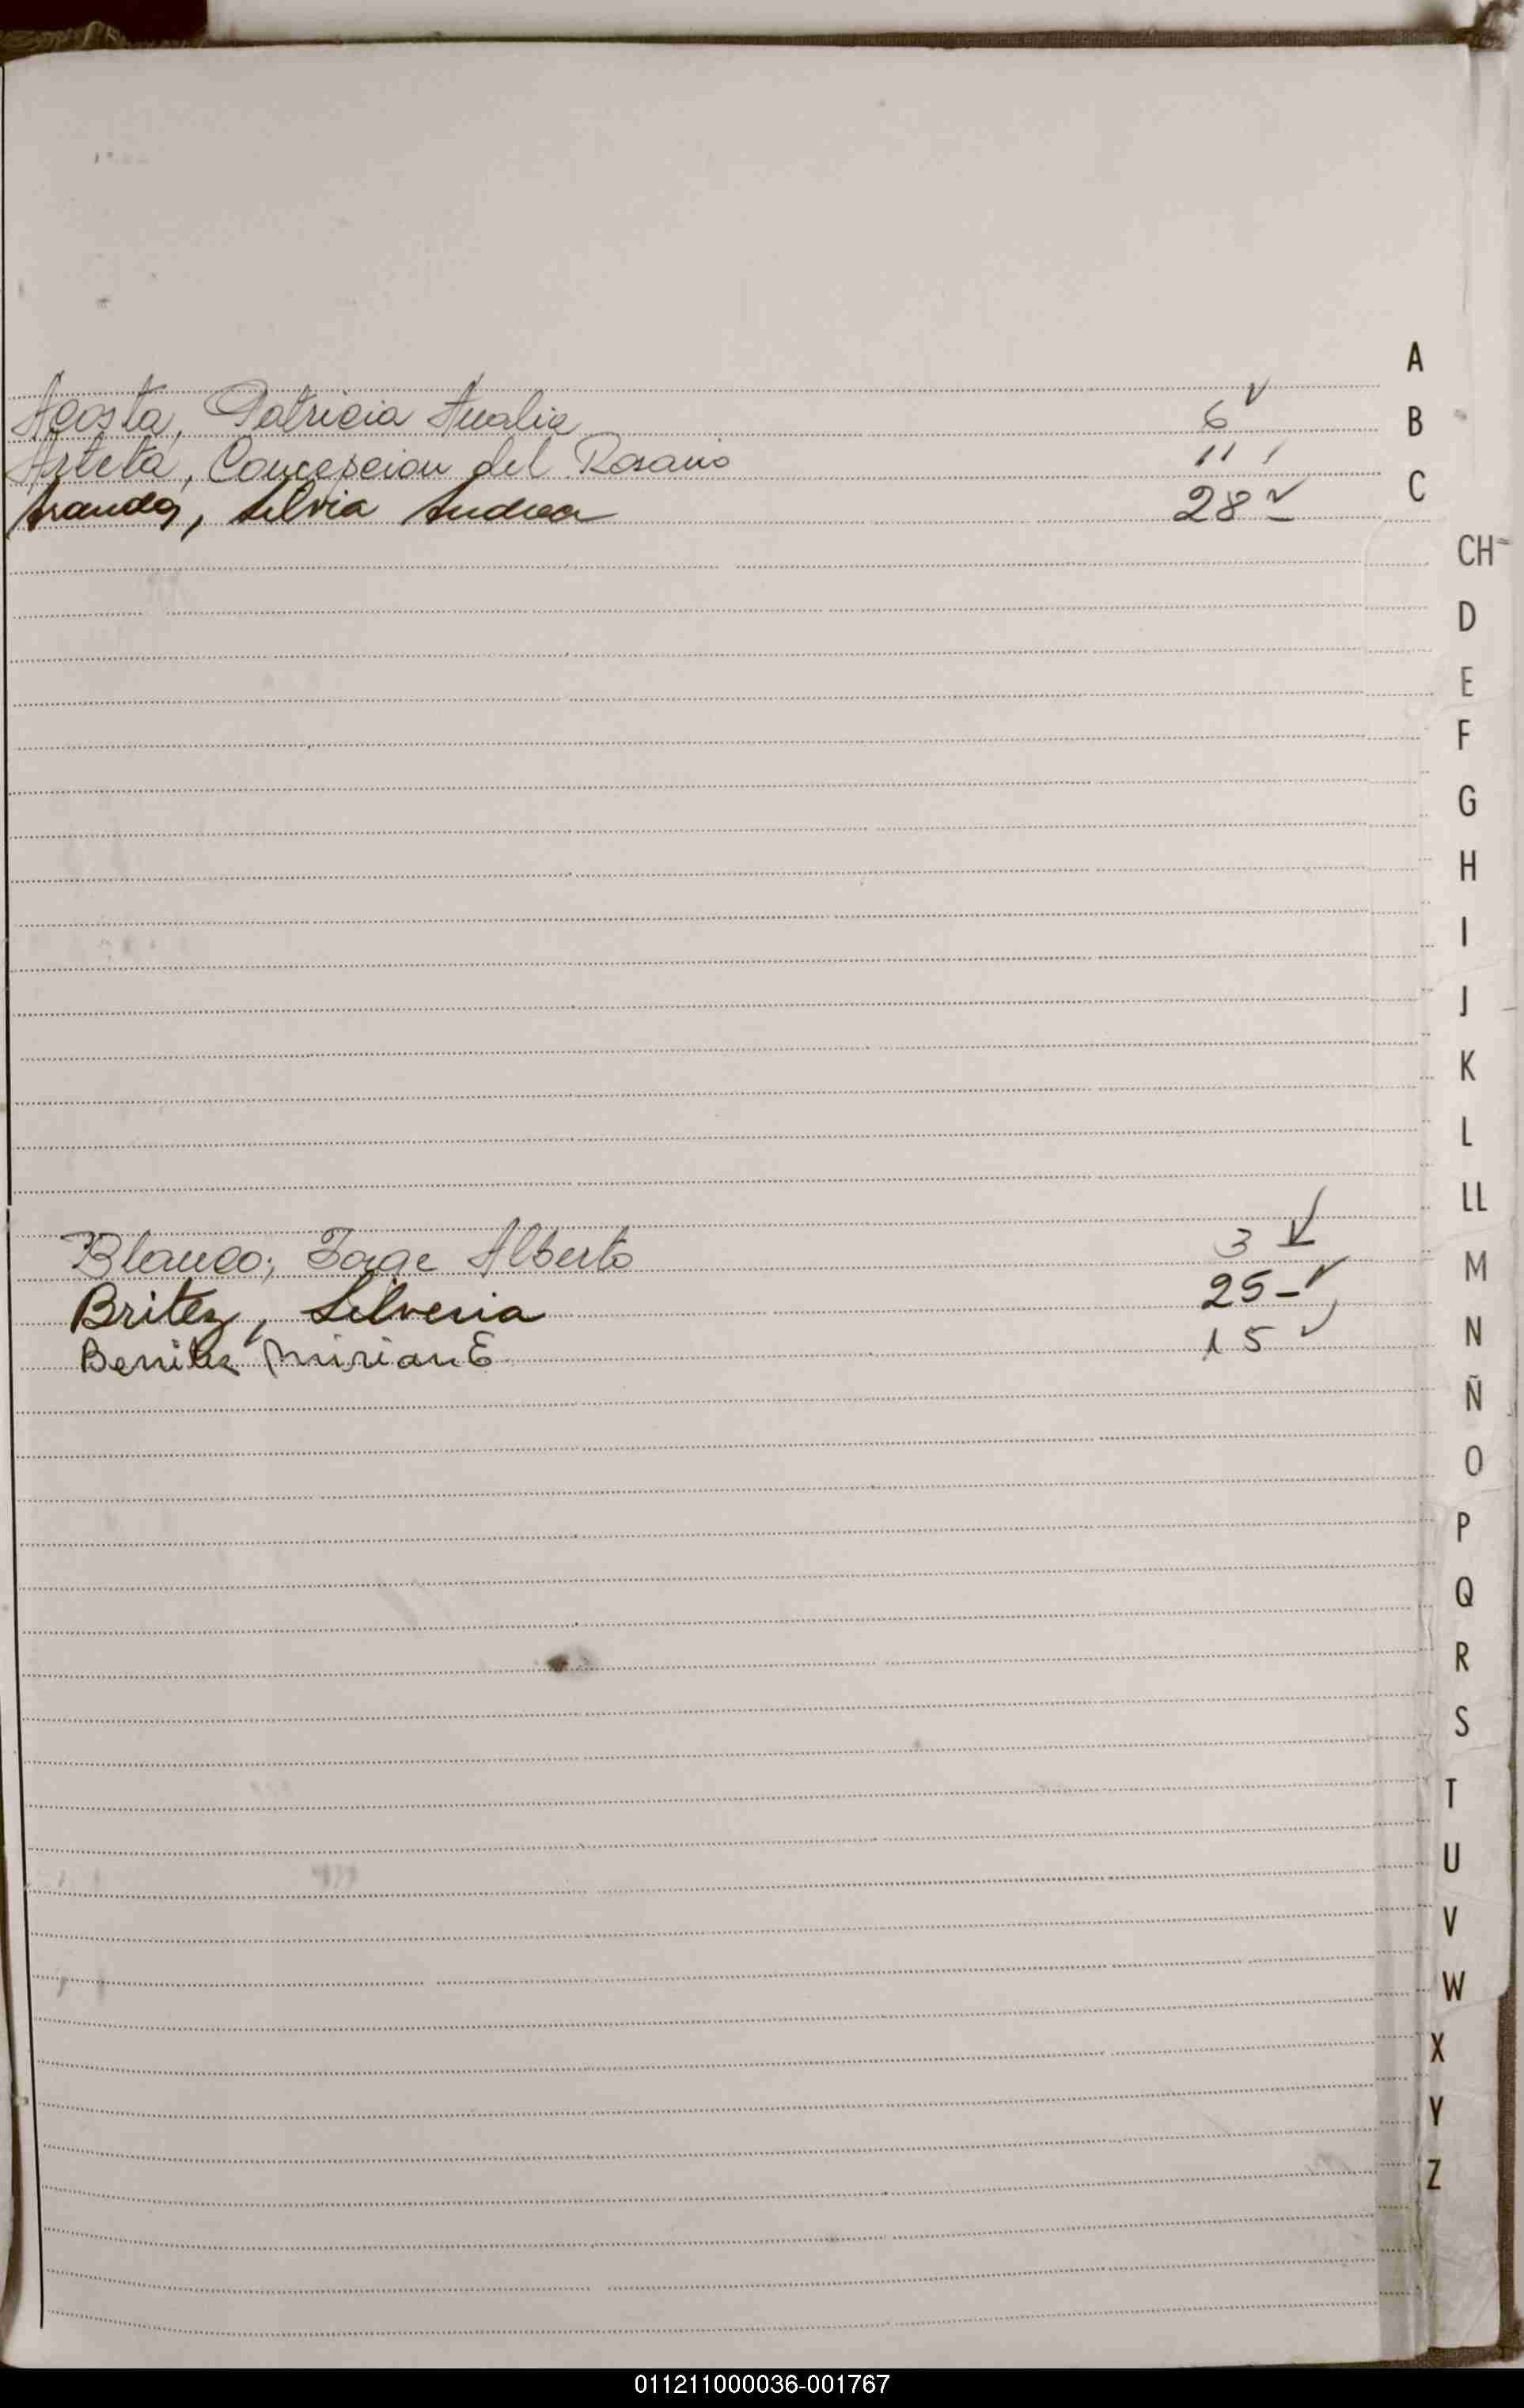 A
Acosta, Patricia Analia 6 ✓
B
Arteta, Concepcion del Rosario 11 ✓
C
Aranda, Silvia Andrea 28 ✓
CH
D
E
F
G
H
I
J
K
L
LL
Blanco, Jorge Alberto 3 ✓
M
Britez, Silveria 25 - ✓
N
Benitez Mirian E 15 ✓
Ñ
O
P
Q
R
S
T
U
V
W
X
Y
Z
011211000036-001767